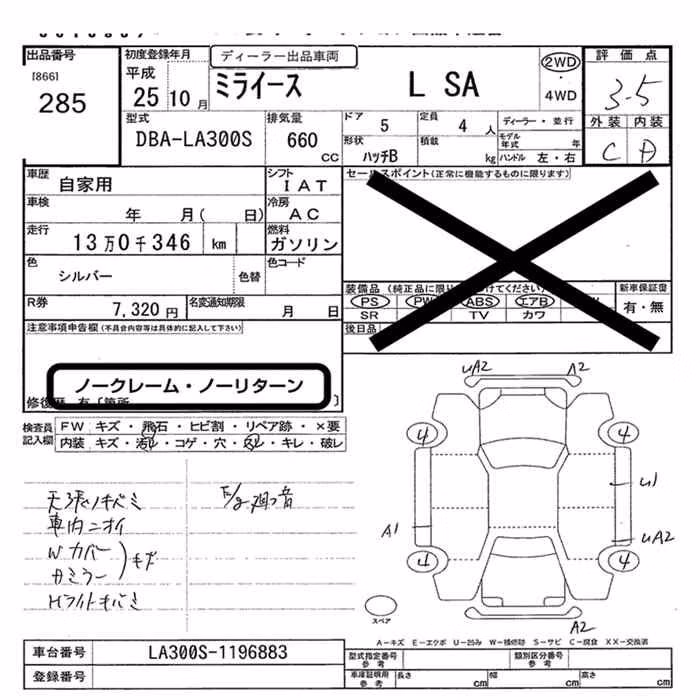 出品番号
[866]
285
初度登録年月
平成
25 10 月
ディーラー出品車両
ミライース
L SA
2WD
・
4WD
評価点
3.5
外装 内装
C D
型式
DBA-LA300S
排気量
660
CC
ドア 5
定員 4 人
形状 ハッチB
積載 kg
ディーラー・並行
モデル年式 年
ハンドル 左・右
車歴
自家用
シフト
IAT
車検
年 月( 日)
冷房
AC
走行
13万0千346 km
燃料
ガソリン
色
シルバー
色替
色コード
R券
7,320 円
名変通知期限
月 日
セールスポイント(正常に機能するものに限ります)
装備品 (純正品に限り けてください)
PS PW ABS エアB W
SR TV カワ
新車保証書
有・無
後日品
注意事項申告欄 (不具合内容等は具体的に記入して下さい)
ノークレーム・ノーリターン
修復歴 有 [箇所 ]
検査員記入欄
FW キズ・飛石・ヒビ割・リペア跡・×要
内装 キズ・汚レ・コゲ・穴・スレ・キレ・破レ
天張ノキバミ
車内ニオイ
Wカバー
Fミラー
キズ
Hライトキバミ
E/g廻り音
uA2
A2
4
4
u1
A1
uA2
4
4
A2
スペア
A-キズ E-エクボ U-凹み W-補修跡 S-サビ C-腐食 XX-交換済
車台番号
LA300S-1196883
登録番号
型式指定番号
参考
類別区分番号
参考
車庫証明用
参考
長さ cm
幅 cm
高さ cm